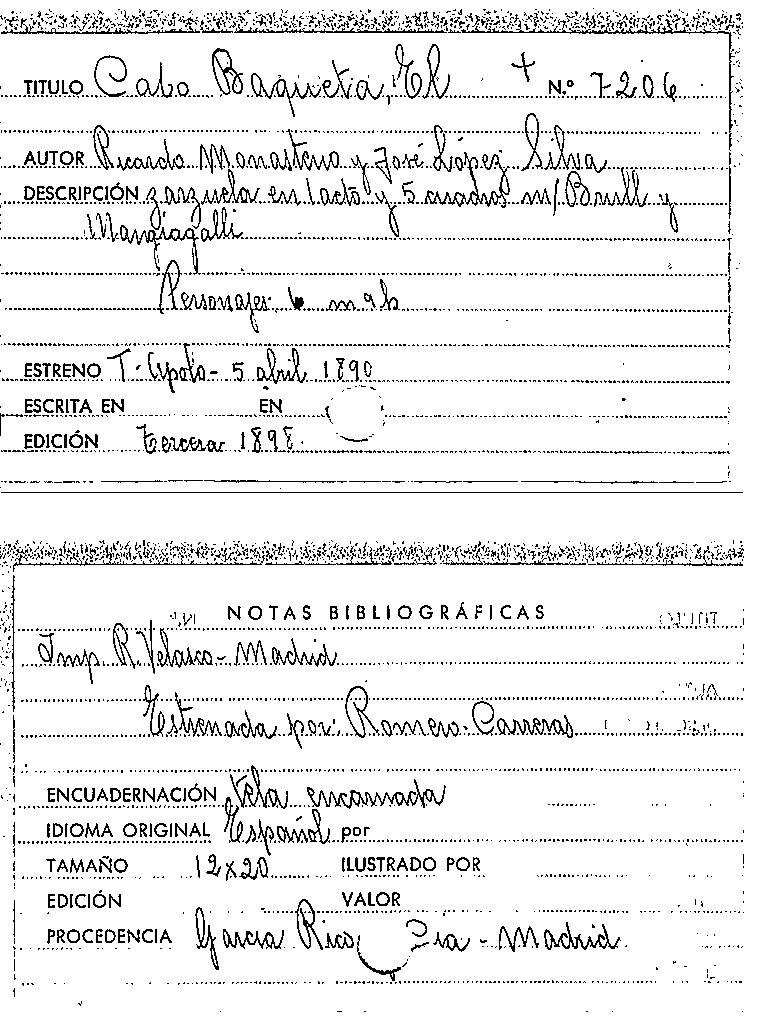 TITULO Cabo Baqueta, El + N.º 7206
AUTOR Ricardo Monasterio y José López Silva
DESCRIPCIÓN zarzuela en 1 acto y 5 cuadros m/ Brull y
Mangiagalli
Personajes 6 m 9 h
ESTRENO T. Apolo - 5 abril 1890
ESCRITA EN EN
EDICIÓN tercera 1898.
NOTAS BIBLIOGRÁFICAS
Imp R. Velasco - Madrid
Estrenada por: Romero - Carreras
ENCUADERNACIÓN tela encarnada
IDIOMA ORIGINAL Español por
TAMAÑO 12x20 ILUSTRADO POR
EDICIÓN VALOR
PROCEDENCIA Garcia Rico y Cia - Madrid